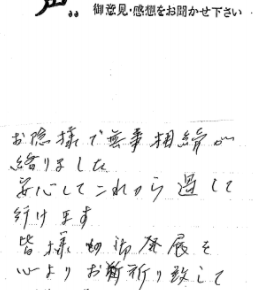 声 御意見・感想をお聞かせ下さい
お陰様で無事相続が
終りました
安心してこれから過して
行けます
皆様の御発展を
心よりお祈り致して